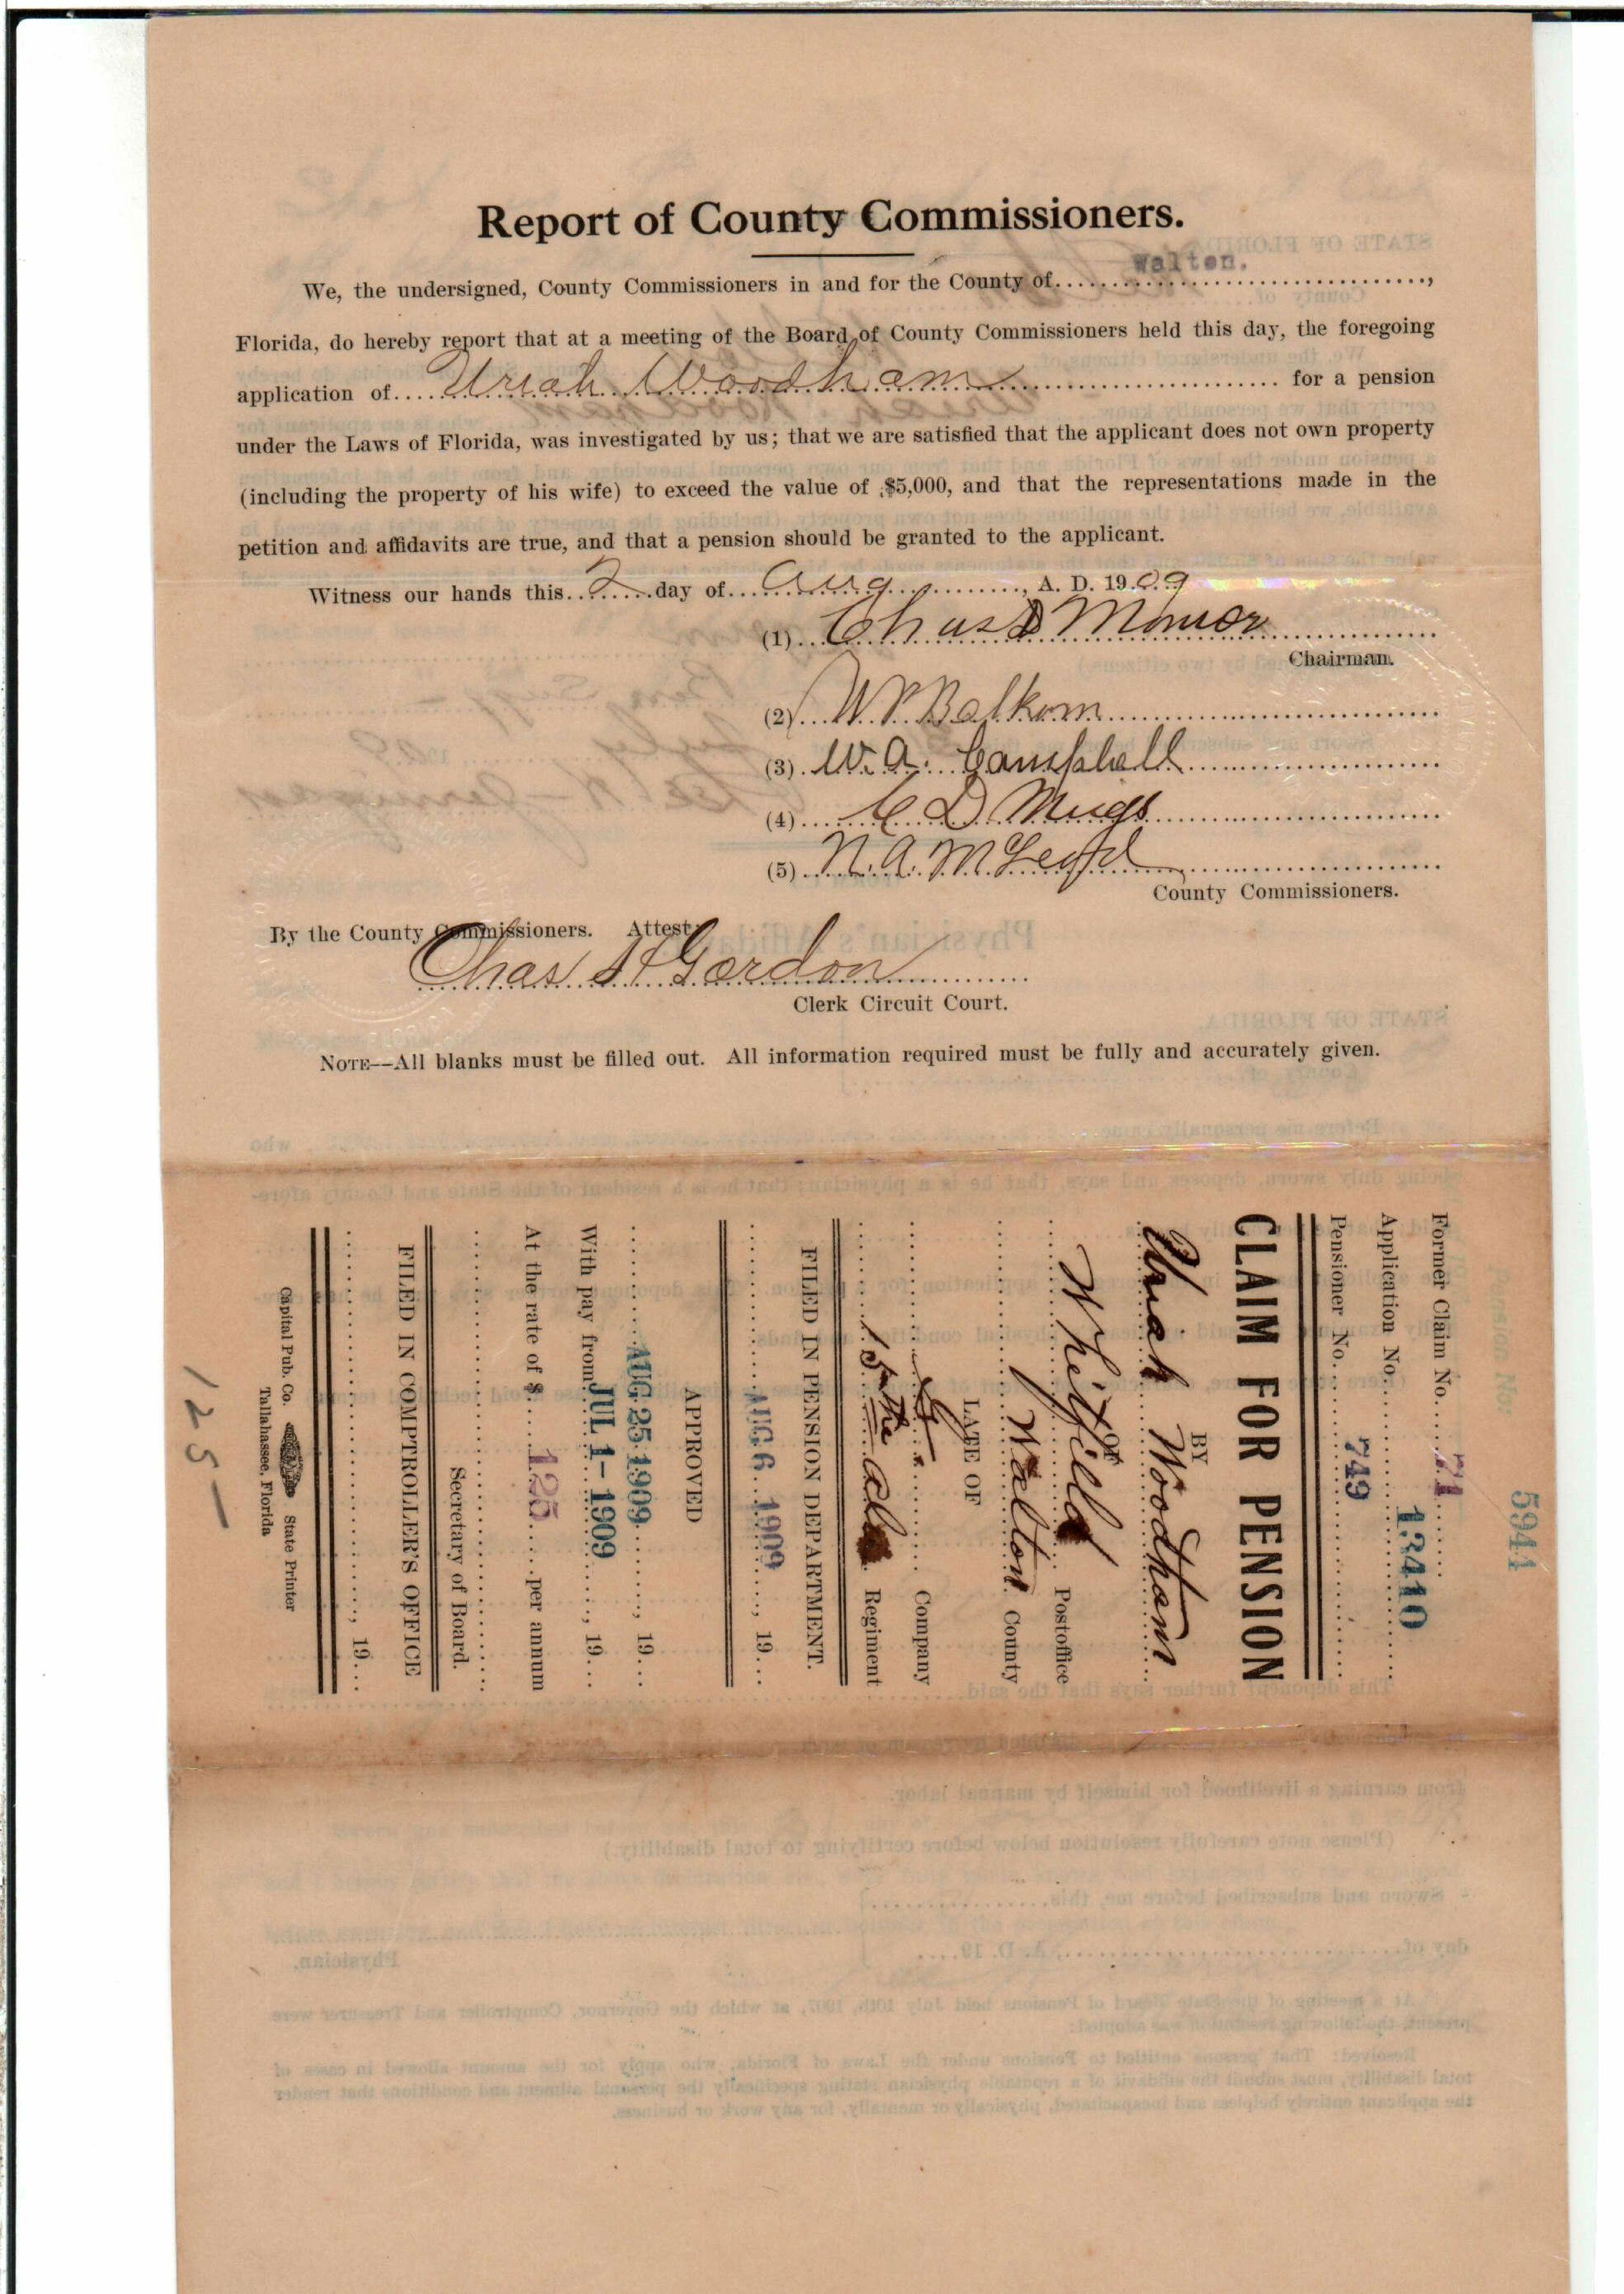 Report of County Commissioners.
We, the undersigned, County Commissioners in and for the County of Walton.,
Florida, do hereby report that at a meeting of the Board of County Commissioners held this day, the foregoing
application of Uriah Woodham for a pension
under the Laws of Florida, was investigated by us; that we are satisfied that the applicant does not own property
(including the property of his wife) to exceed the value of $5,000, and that the representations made in the
petition and affidavits are true, and that a pension should be granted to the applicant.
Witness our hands this 2 day of Aug, A. D. 1909
(1) Chas
Chairman.
(2) W. P. Balkom
(3) W. A. Campbell
(4) C D
(5) N. A. McLeod
County Commissioners.
By the County Commissioners. Attest:
Chas H Gordon
Clerk Circuit Court.
NOTE—All blanks must be filled out. All information required must be fully and accurately given.
5944
Former Claim No. 71
Application No. 13410
Pensioner No. 749
CLAIM FOR PENSION
BY
Uriah Woodham
OF
Whitfield Postoffice
Walton County
LATE OF
Company
15 the ala Regiment
FILED IN PENSION DEPARTMENT.
AUG 6 1909, 19
APPROVED
AUG 25 1909, 19
With pay from JUL 1 - 1909, 19
At the rate of $ 125 per annum
Secretary of Board.
FILED IN COMPTROLLER'S OFFICE
, 19
Capital Pub. Co. State Printer
Tallahassee, Florida
125—